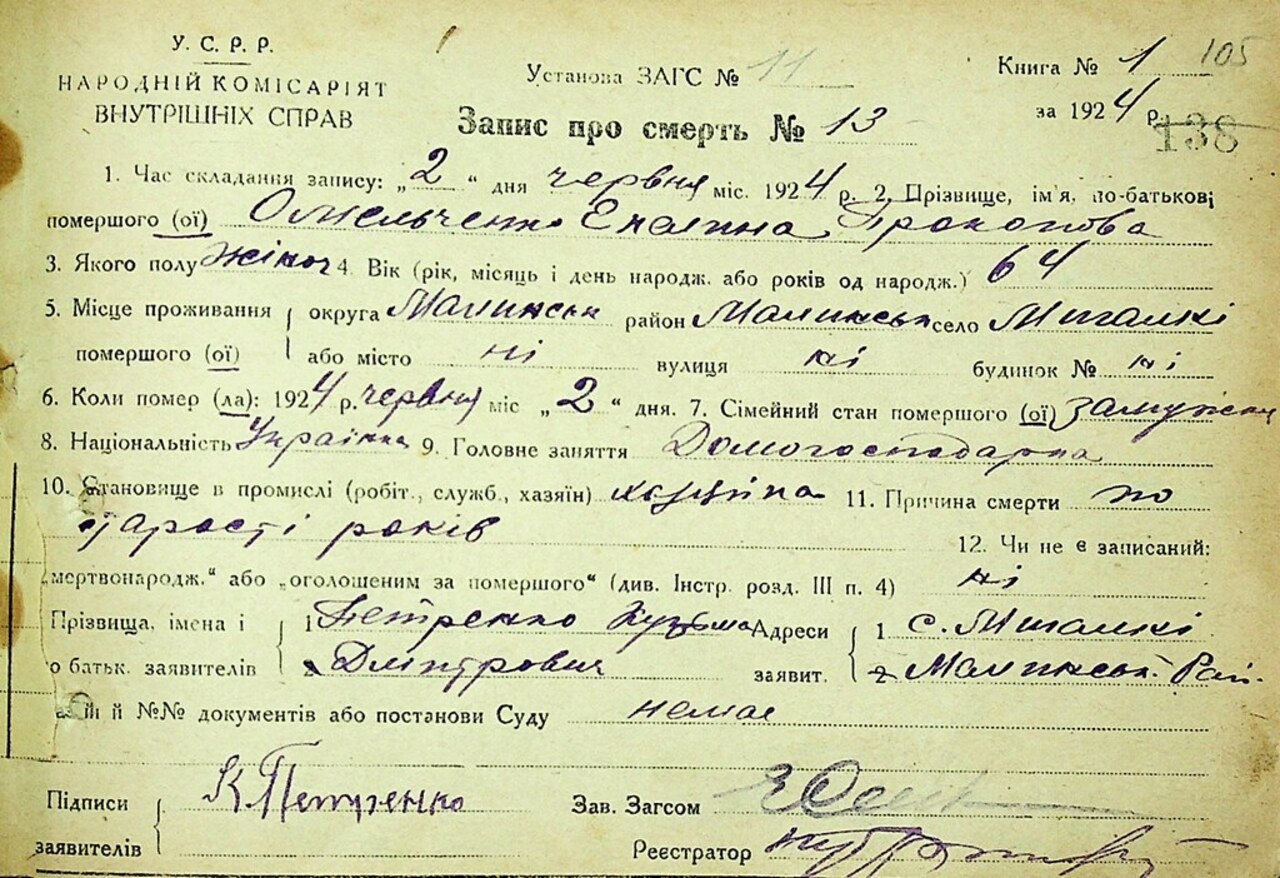 У. С. Р. Р.
НАРОДНІЙ КОМІСАРІЯТ
ВНУТРІШНІХ СПРАВ
Установа ЗАГС № 11
Книга № 1 105
за 1924 р.
138
Запис про смерть № 13
1. Час складання запису: „2“ дня червня міс. 1924 р. 2. Прізвище, ім'я, по-батькові
помершого (ої) Омельченко Прокопова
3. Якого полу жіноч 4. Вік (рік, місяць і день народж. або років од народж.) 64
5. Місце проживання округа Малинськ район Малинськ село Мигалкі
помершого (ої) або місто ні вулиця ні будинок № ні
6. Коли помер (ла): 1924 р. червня міс „2“ дня. 7. Сімейний стан помершого (ої) замужня
8. Національність Українка 9. Головне заняття Домогосподарка
10. Становище в промислі (робіт., служб., хазяїн) 11. Причина смерти по
старості років
12. Чи не є записаний:
„мертвонародж.“ або „оголошеним за помершого“ (див. Інстр. розд. III п. 4) ні
Прізвища, імена і 1 Петренко Кузьма Адреси 1 с. Мигалкі
о батьк. заявителів 2 Дмітрович заявит. 2 Малинськ. Рай.
й №№ документів або постанови Суду немає
Підписи К Петренко Зав. Загсом
заявителів Реєстратор